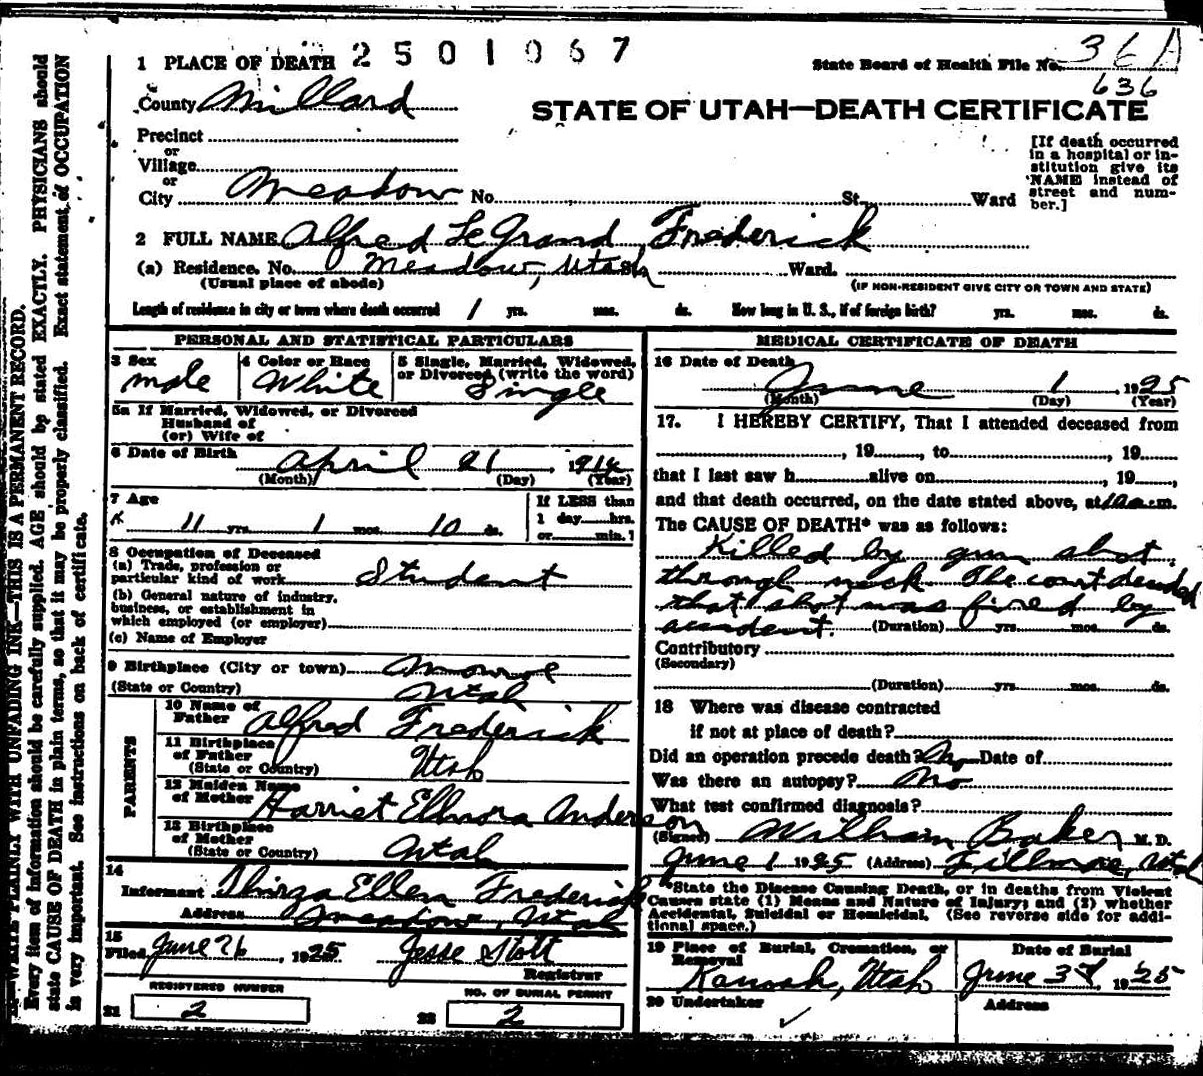 1 PLACE OF DEATH 2501067
State Board of Health File No. 36A
636
County Millard
STATE OF UTAH—DEATH CERTIFICATE
Precinct
or
Village
or
City Meadow No. St. Ward
[If death occurred
in a hospital or in-
stitution give its
NAME instead of
street and num-
ber.]
2 FULL NAME Alfred LeGrand Frederick
(a) Residence. No. Meadow, Utah St. Ward.
(Usual place of abode) (IF NON-RESIDENT GIVE CITY OR TOWN AND STATE)
Length of residence in city or town where death occurred 1 yrs. mos. ds. How long in U. S., if of foreign birth? yrs. mos. ds.
PERSONAL AND STATISTICAL PARTICULARS
3 Sex male
4 Color or Race White
5 Single, Married, Widowed,
or Divorced (write the word)
Single
5a If Married, Widowed, or Divorced
Husband of
(or) Wife of
6 Date of Birth
April 21, 1914
(Month) (Day) (Year)
7 Age
11 yrs. 1 mos. 10 ds.
If LESS than
1 day hrs.
or min.?
8 Occupation of Deceased
(a) Trade, profession or
particular kind of work Student
(b) General nature of industry,
business, or establishment in
which employed (or employer)
(c) Name of Employer
9 Birthplace (City or town) Monroe
(State or Country) Utah
PARENTS
10 Name of
Father Alfred Frederick
11 Birthplace
of Father
(State or Country) Utah
12 Maiden Name
of Mother Harriet Ellnora Anderson
13 Birthplace
of Mother
(State or Country) Utah
14
Informant Thirza Ellen Frederick
Address Meadow, Utah
15
Filed June 26, 1925 Jesse Stott
Registrar
REGISTERED NUMBER
21 2
NO. OF BURIAL PERMIT
22 2
MEDICAL CERTIFICATE OF DEATH
16 Date of Death
June 1, 1925
(Month) (Day) (Year)
17. I HEREBY CERTIFY, That I attended deceased from
, 19, to , 19
that I last saw h alive on , 19,
and that death occurred, on the date stated above, at 10 a m.
The CAUSE OF DEATH* was as follows:
Killed by gun shot
through neck. The court decided
that shot was fired by
accident. (Duration) yrs. mos. ds.
Contributory
(Secondary)
(Duration) yrs. mos. ds.
18 Where was disease contracted
if not at place of death?
Did an operation precede death? No Date of
Was there an autopsy? No
What test confirmed diagnosis?
(Signed) William Baker M. D.
June 1 1925 (Address) Fillmore, Utah
*State the Disease Causing Death, or in deaths from Violent
Causes state (1) Means and Nature of Injury; and (2) whether
Accidental, Suicidal or Homicidal. (See reverse side for addi-
tional space.)
19 Place of Burial, Cremation, or
Removal
Kanosh, Utah
Date of Burial
June 3d, 1925
20 Undertaker
Address
WRITE PLAINLY WITH UNFADING INK—THIS IS A PERMANENT RECORD.
Every item of information should be carefully supplied. AGE should be stated EXACTLY. PHYSICIANS should
state CAUSE OF DEATH in plain terms, so that it may be properly classified. Exact statement of OCCUPATION
is very important. See instructions on back of certificate.